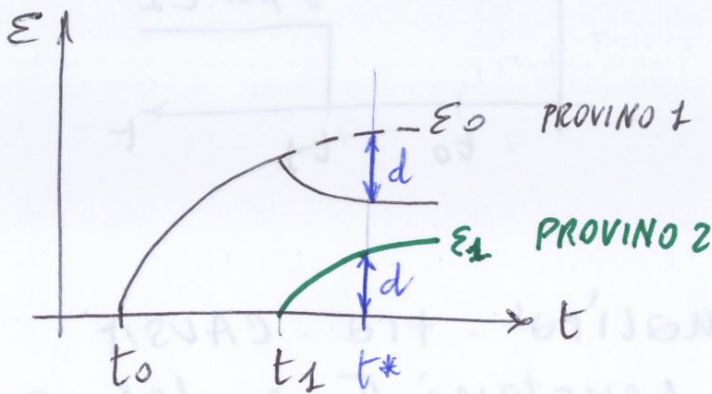 ε
ε0 PROVINO 1
d
ε1 PROVINO 2
d
t
t0 t1 t*